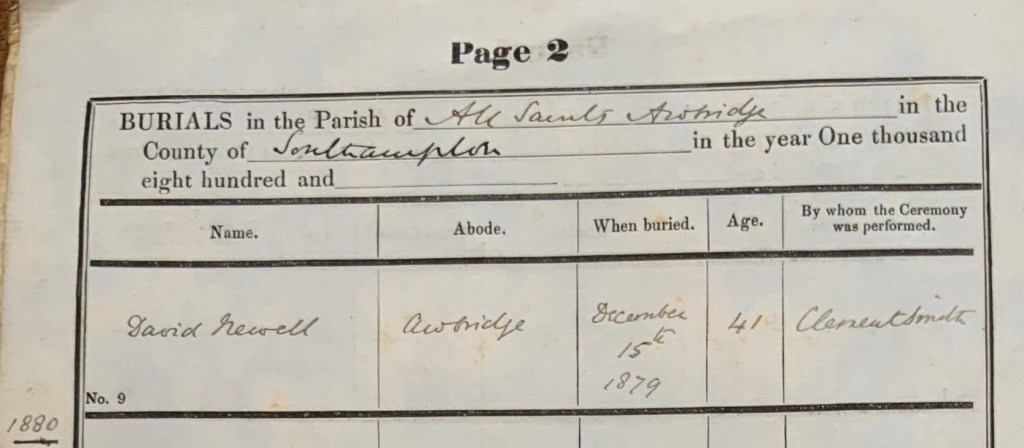 Page 2
BURIALS in the Parish of All Saints Awbridge in the
County of Southampton in the year One thousand
eight hundred and
Name. Abode. When buried. Age. By whom the Ceremony
was performed.
David Newell Awbridge December 41 Clement Smith
15th
1879
No. 9
1880